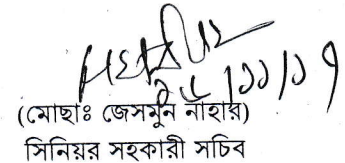 ২৫/১১/১৭
(মোছাঃ জেসমুন নাহার)
সিনিয়র সহকারী সচিব